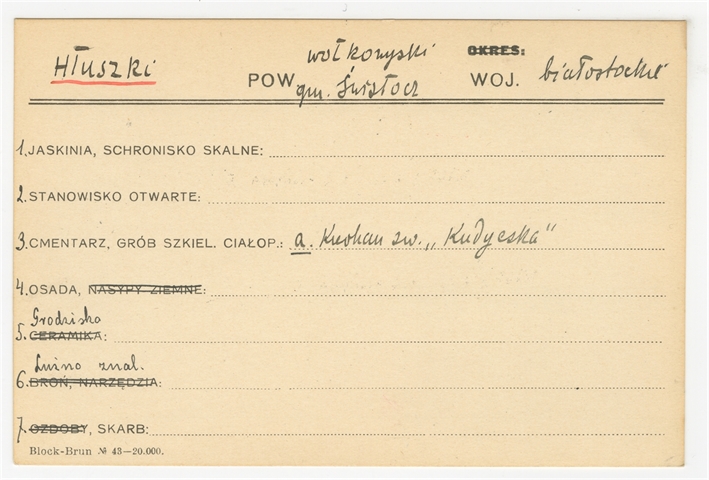 Hłuszki POW. wołkowyski OKRES: WOJ. białostockie
gm. Świsłocz
1. JASKINIA, SCHRONISKO SKALNE:
2. STANOWISKO OTWARTE:
3. CMENTARZ, GRÓB SZKIEL. CIAŁOP.: a. Kurhan zw. „Kudyeska"
4. OSADA, NASYPY ZIEMNE:
Grodziska
5. CERAMIKA:
Luźno znal.
6. BROŃ, NARZĘDZIA:
7. OZDOBY, SKARB:
Block-Brun № 43—20.000.